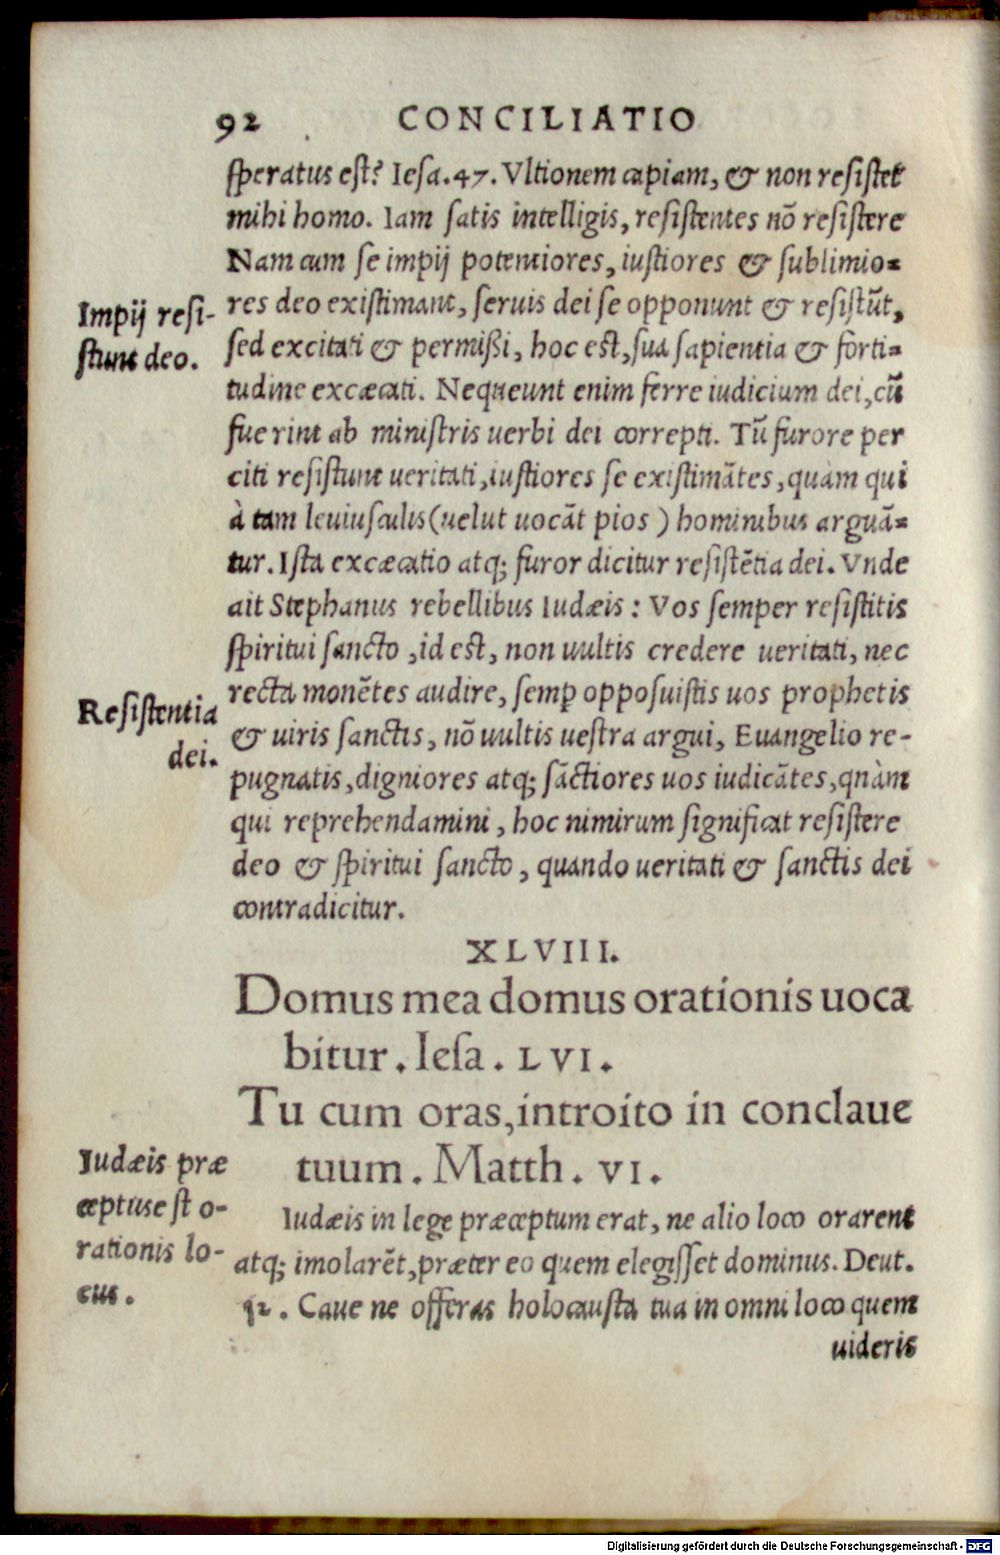 92 CONCILIATIO
speratus est? Iesa.47. Vltionem capiam, & non resistet
mihi homo. Iam satis intelligis, resistentes nō resistere
Nam cum se impij potentiores, iustiores & sublimio-
res deo existimant, seruis dei se opponunt & resistūt,
sed excitati & permißi, hoc est, sua sapientia & forti-
tudine excæcati. Nequeunt enim ferre iudicium dei, cū
fuerint ab ministris uerbi dei correpti. Tū furore per
citi resistunt ueritati, iustiores se existimātes, quàm qui
à tam leuiusculis (uelut uocāt pios) hominibus arguā-
tur. Ista excæcatio atq; furor dicitur resistētia dei. Vnde
ait Stephanus rebellibus Iudæis: Vos semper resistitis
spiritui sancto, id est, non uultis credere ueritati, nec
recta monētes audire, semp opposuistis uos prophetis
& uiris sanctis, nō uultis uestra argui, Euangelio re-
pugnatis, digniores atq; sāctiores uos iudicātes, quàm
qui reprehendamini, hoc nimirum significat resistere
deo & spiritui sancto, quando ueritati & sanctis dei
contradicitur.
Impij resi-
stunt deo.
Resistentia
dei.
XLVIII.
Domus mea domus orationis uoca
bitur. Iesa. LVI.
Tu cum oras, introito in conclaue
tuum. Matth. VI.
Iudæis præ
ceptus est o-
rationis lo-
cus.
Iudæis in lege præceptum erat, ne alio loco orarent
atq; imolarēt, præter eo quem elegisset dominus. Deut.
12. Caue ne offeras holocausta tua in omni loco quem
uideris
Digitalisierung gefördert durch die Deutsche Forschungsgemeinschaft - DFG